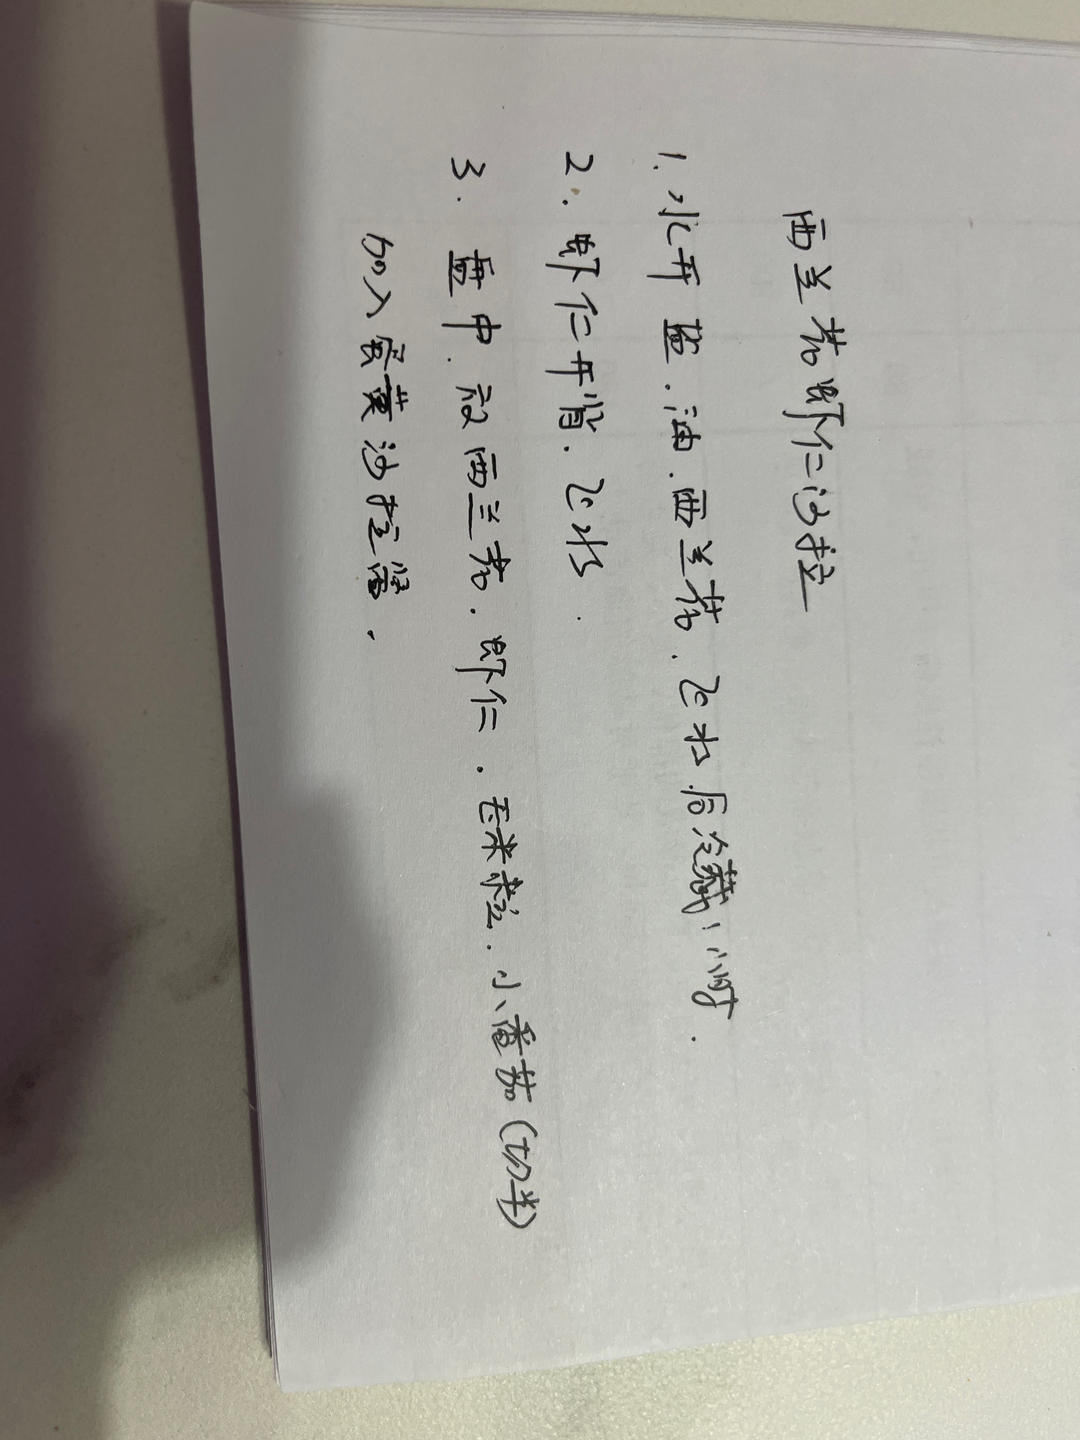 西兰花虾仁沙拉
1. 水开 盐、油、西兰花、飞水后冷藏1小时.
2. 虾仁开背、飞水.
3. 盘中、放西兰花、虾仁、玉米粒、小番茄(切半)
加入蛋黄沙拉酱.